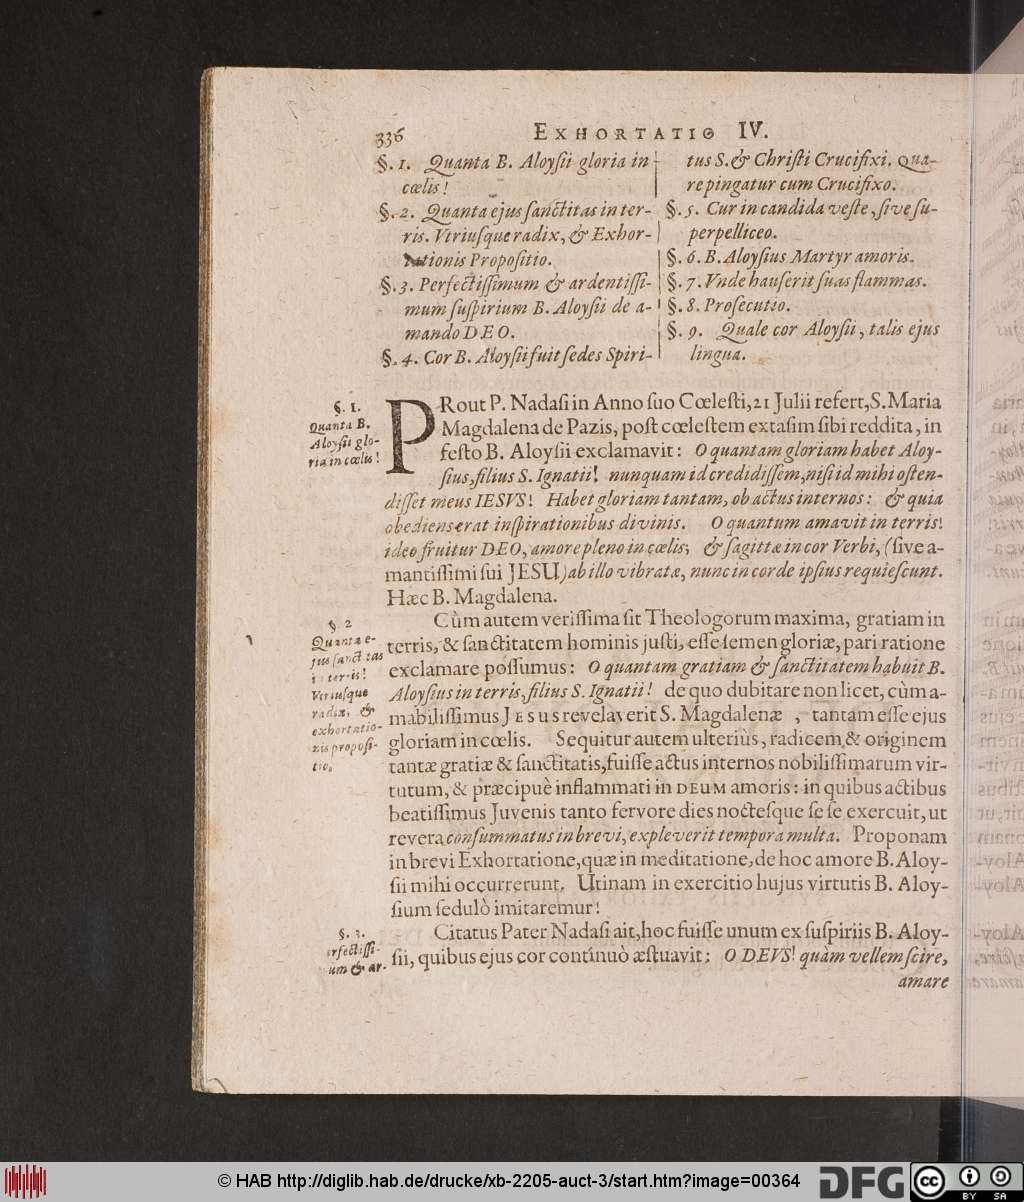 336 EXHORTATIO IV.
§. 1. Quanta B. Aloyſii gloria in
cœlis!
§. 2. Quanta ejus ſanctitas in ter-
ris. Vtriuſque radix, & Exhor-
tationis Propoſitio.
§. 3. Perfectiſſimum & ardentiſſi-
mum ſuſpirium B. Aloyſii de a-
mando DEO.
§. 4. Cor B. Aloyſii fuit ſedes Spiri-
tus S. & Chriſti Crucifixi. Qua-
re pingatur cum Crucifixo.
§. 5. Cur in candida veſte, ſive ſu-
perpelliceo.
§. 6. B. Aloyſius Martyr amoris.
§. 7. Vnde hauſerit ſuas flammas.
§. 8. Proſecutio.
§. 9. Quale cor Aloyſii, talis ejus
lingua.
§. 1.
Quanta B.
Aloyſii glo-
ria in cœlis!
PRout P. Nadaſi in Anno ſuo Cœleſti, 21 Julii refert, S. Maria
Magdalena de Pazis, poſt cœleſtem extaſim ſibi reddita, in
feſto B. Aloyſii exclamavit: O quantam gloriam habet Aloy-
ſius, filius S. Ignatii! nunquam id credidiſſem, niſi id mihi oſten-
diſſet meus IESVS! Habet gloriam tantam, ob actus internos: & quia
obediens erat inſpirationibus divinis. O quantum amavit in terris!
ideo fruitur DEO, amore pleno in cœlis; & ſagittæ in cor Verbi, (ſive a-
mantiſſimi ſui JESU) ab illo vibratæ, nunc in corde ipſius requieſcunt.
Hæc B. Magdalena.
§. 2
Quanta e-
jus ſanctitas
in terris!
Vtriuſque
radix, &
exhortatio-
nis propoſi-
tio.
Cùm autem veriſſima ſit Theologorum maxima, gratiam in
terris, & ſanctitatem hominis juſti, eſſe ſemen gloriæ, pari ratione
exclamare poſſumus: O quantam gratiam & ſanctitatem habuit B.
Aloyſius in terris, filius S. Ignatii! de quo dubitare non licet, cùm a-
mabiliſſimus JESUS revelaverit S. Magdalenæ , tantam eſſe ejus
gloriam in cœlis. Sequitur autem ulteriùs, radicem & originem
tantæ gratiæ & ſanctitatis, fuiſſe actus internos nobiliſſimarum vir-
tutum, & præcipuè inflammati in DEUM amoris: in quibus actibus
beatiſſimus Juvenis tanto fervore dies noctesque ſe ſe exercuit, ut
revera conſummatus in brevi, expleverit tempora multa. Proponam
in brevi Exhortatione, quæ in meditatione, de hoc amore B. Aloy-
ſii mihi occurrerunt. Utinam in exercitio hujus virtutis B. Aloy-
ſium ſedulò imitaremur!
§. 3.
rfectiſſi-
um & ar-
Citatus Pater Nadaſi ait, hoc fuiſſe unum ex ſuſpiriis B. Aloy-
ſii, quibus ejus cor continuò æſtuavit: O DEVS! quàm vellem ſcire,
amare
© HAB http://diglib.hab.de/drucke/xb-2205-auct-3/start.htm?image=00364
DFG
cc BY SA